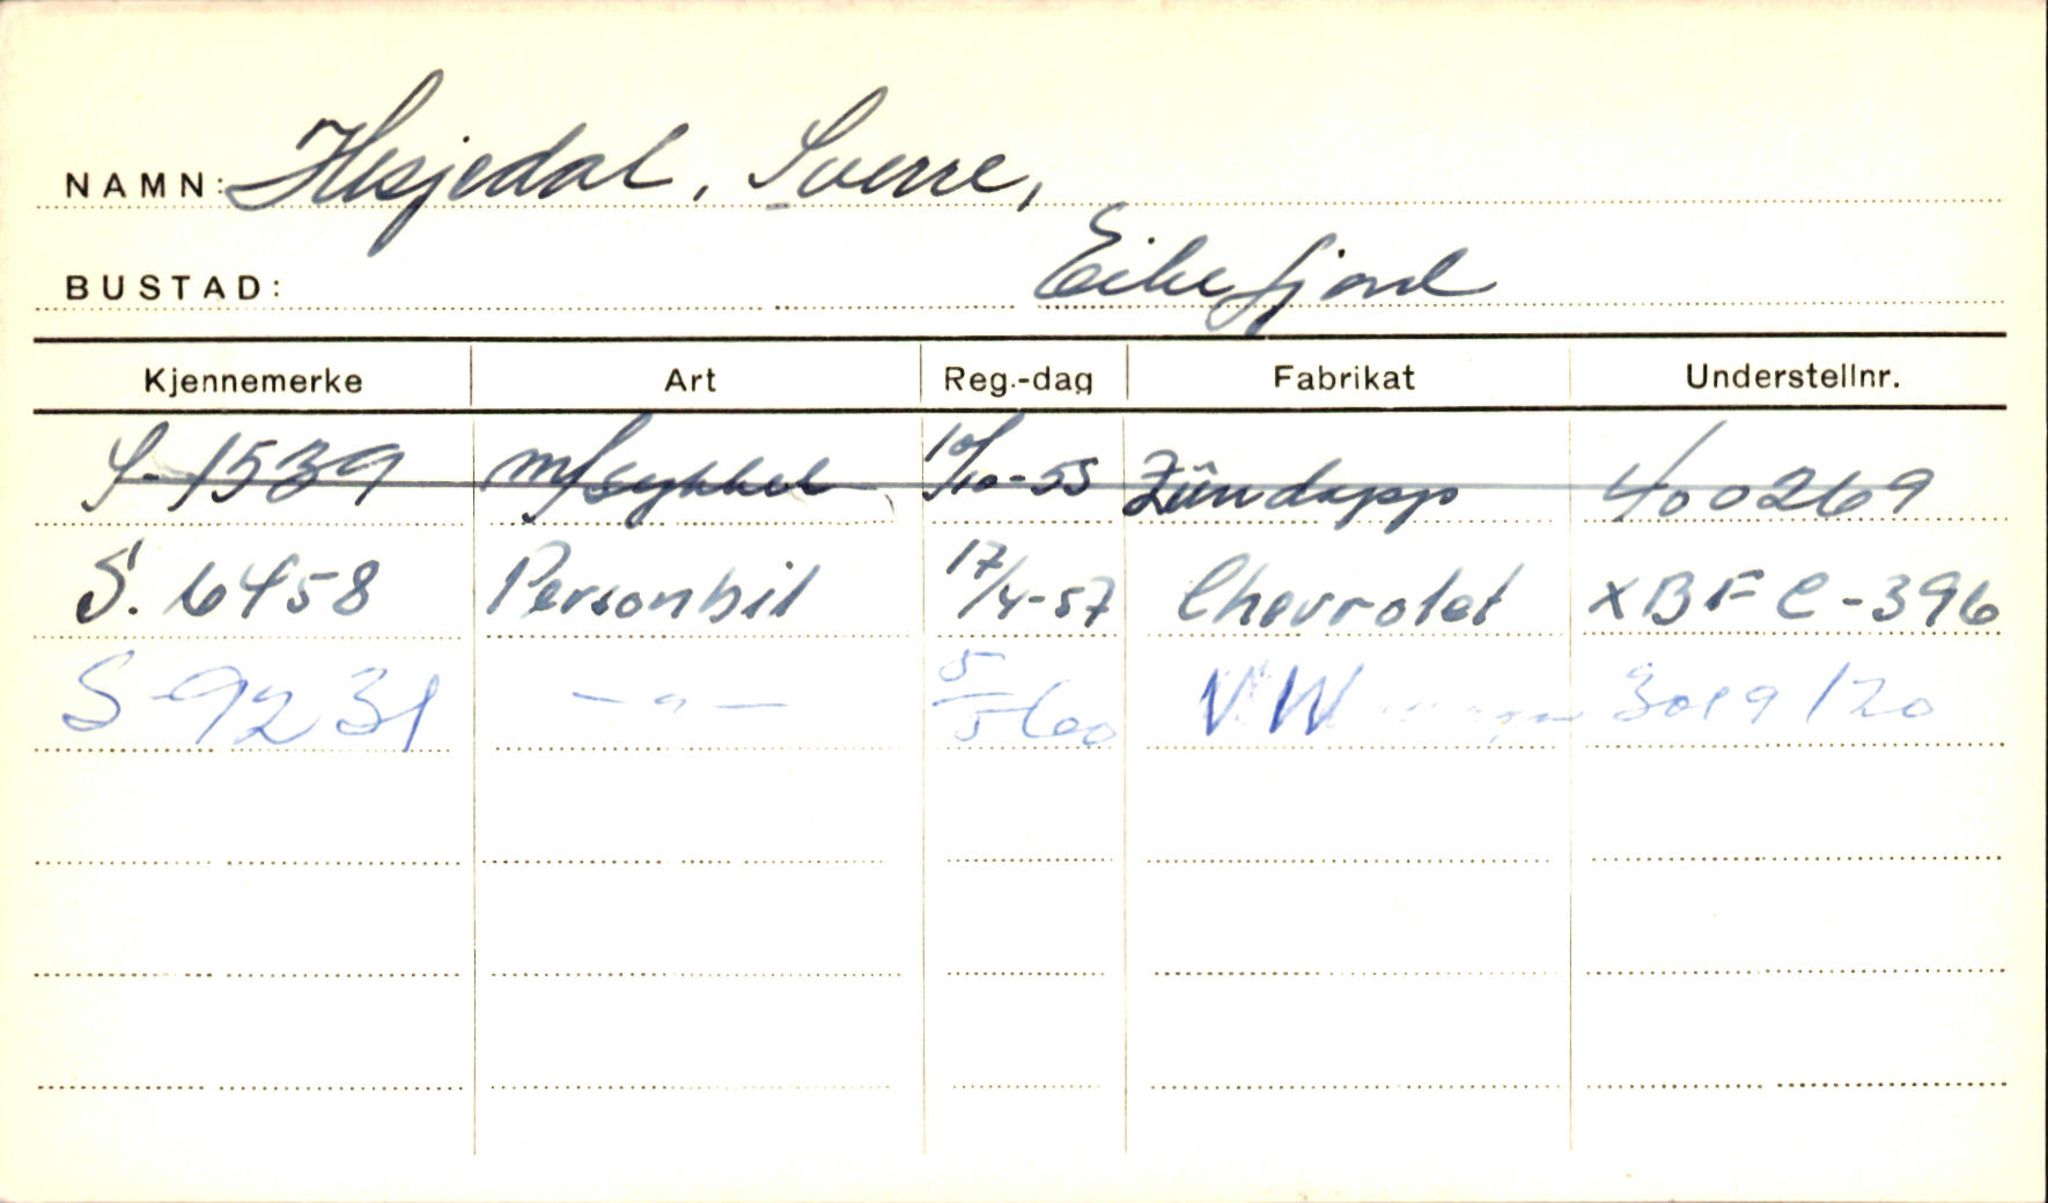 NAMN: Hesjedal, Sverre,
BUSTAD: Eikefjord
Kjennemerke Art Reg.-dag Fabrikat Understellnr.
S-1539 m/sykkel 10/10-55 Zündapp 400269
S. 6458 Personbil 17/4-57 Chevrolet XBFC-396
S-9231 — " — 5/5 60 VW 3019120